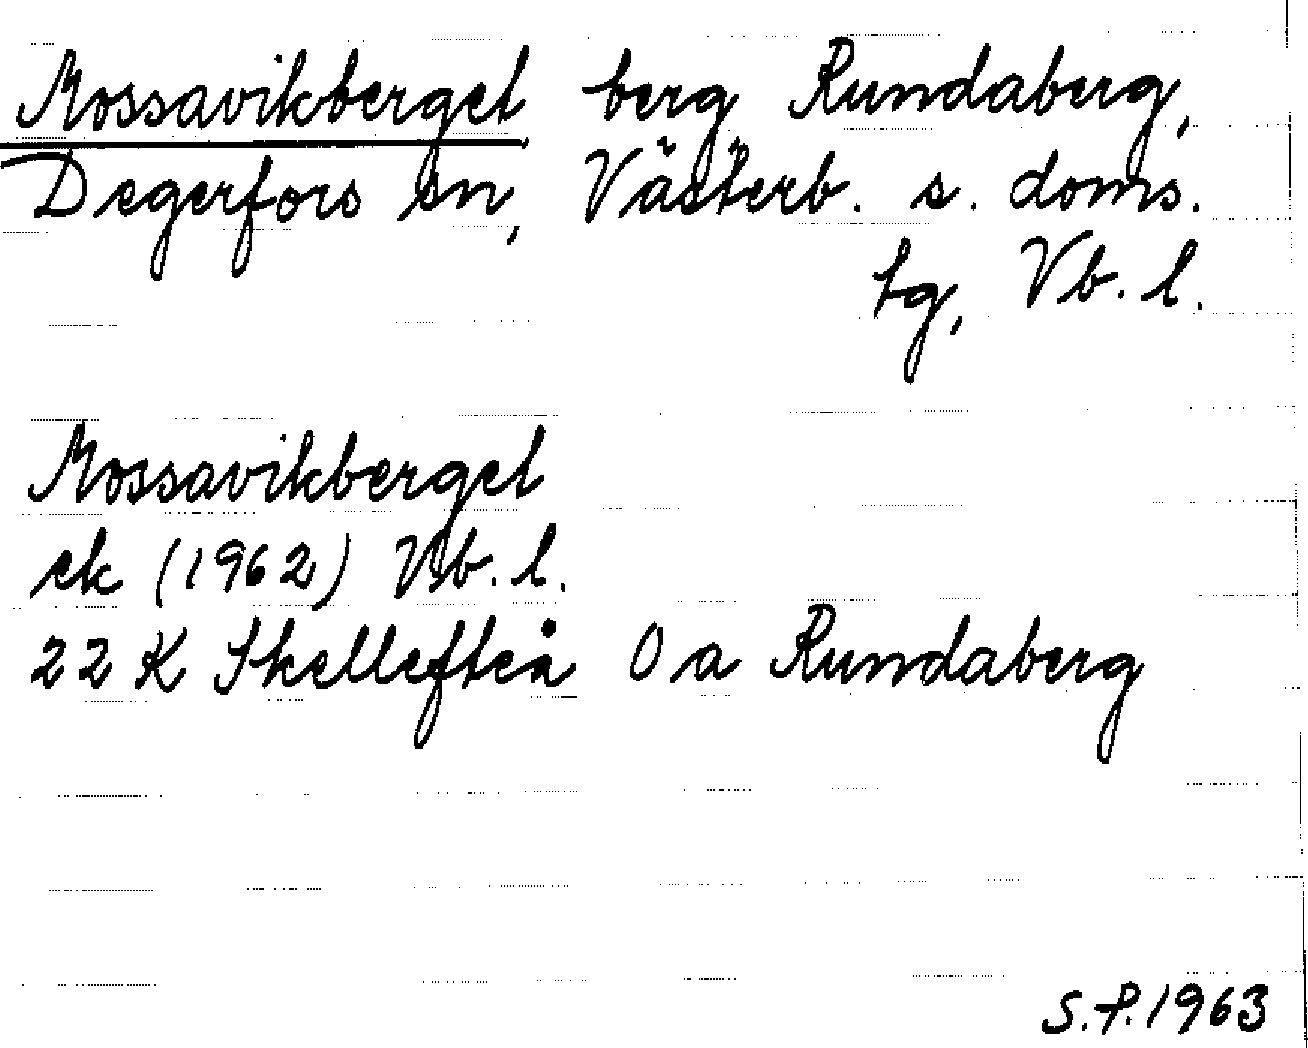 Mossavikberget berg Rundaberg,
Degerfors sn, Västerb. s. doms.
tg, Vb. l.
Mossavikberget
ek (1962) Vb. l.
22 K Skellefteå 0 a Rundaberg
S.P. 1963